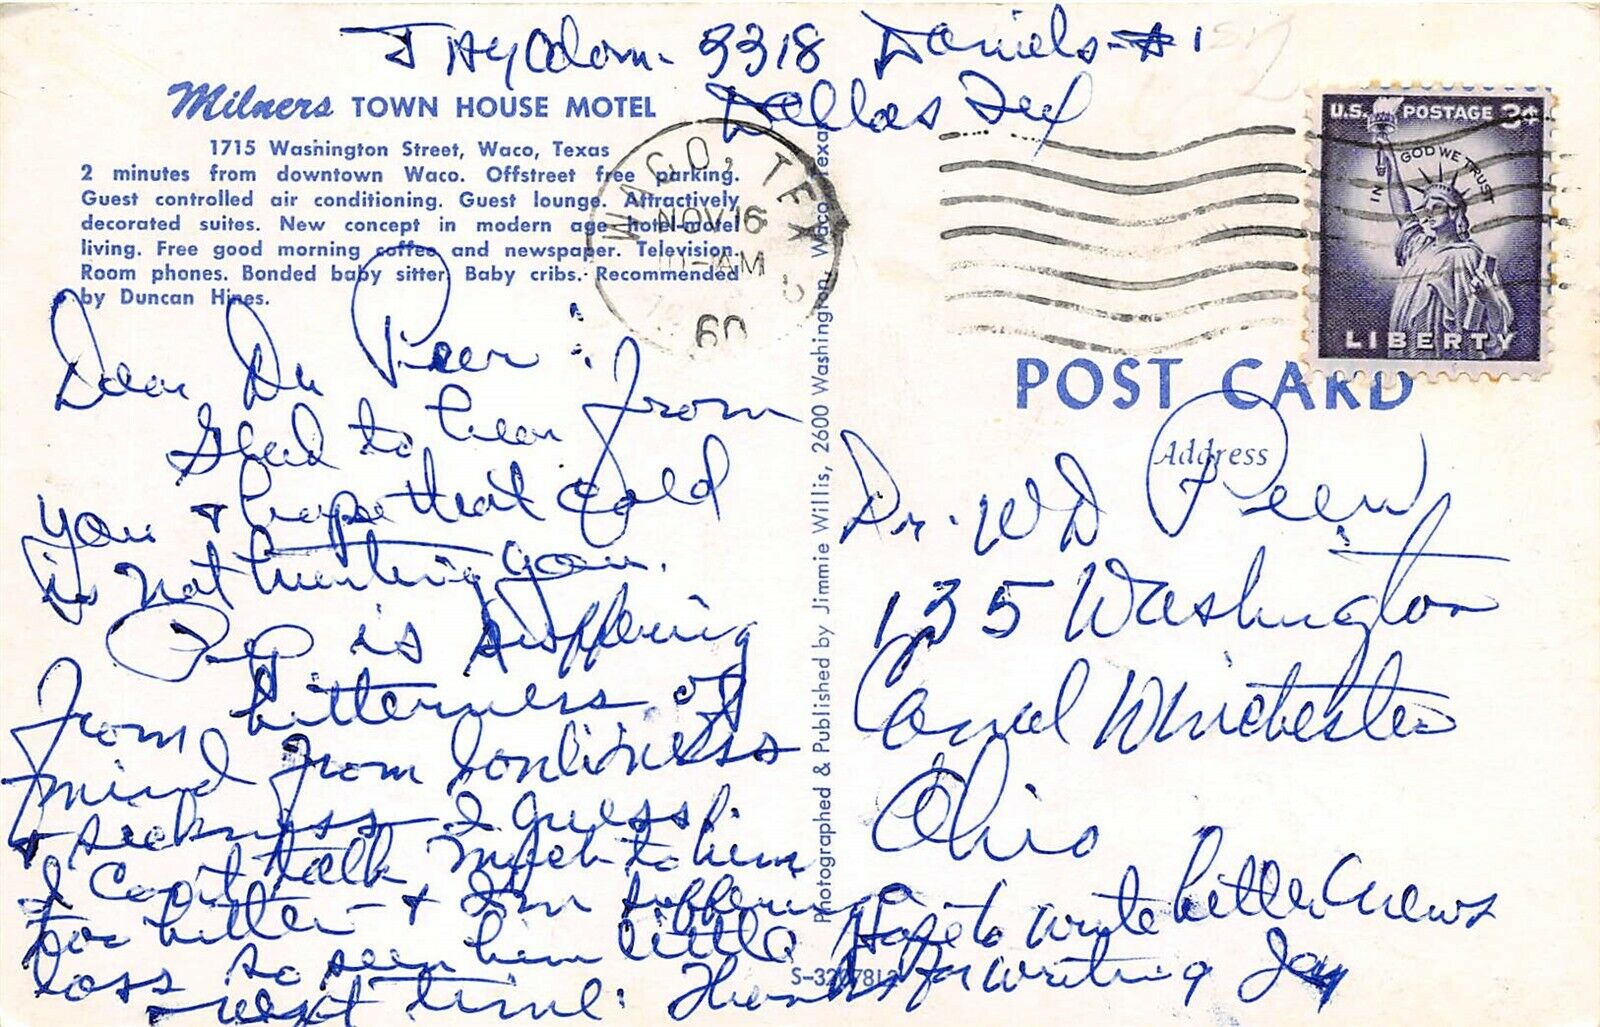 3318 Daniels - #1
Dallas Tex
Milners TOWN HOUSE MOTEL
1715 Washington Street, Waco, Texas
2 minutes from downtown Waco. Offstreet free parking.
Guest controlled air conditioning. Guest lounge. Attractively
decorated suites. New concept in modern age hotel-motel
living. Free good morning coffee and newspaper. Television.
Room phones. Bonded baby sitter. Baby cribs. Recommended
by Duncan Hines.
WACO, TEX
NOV 16
AM
60
U.S. POSTAGE 3¢
IN GOD WE TRUST
LIBERTY
Dear Dr Peer:
Glad to hear from
you & hope that cold
is not hurting you.
Pep is suffering
from bitterness of
mind from lonliness
& sickness I guess.
I can't talk much to him
too bitter - & I'm suffering
loss so seen him little
next time. Thanks for writing Jay
Photographed & Published by Jimmie Willis, 2600 Washington, Waco, Texas
POST CARD
Address
Dr. WD Peer
135 Washington
Canal Winchester
Ohio
Hope to write better news